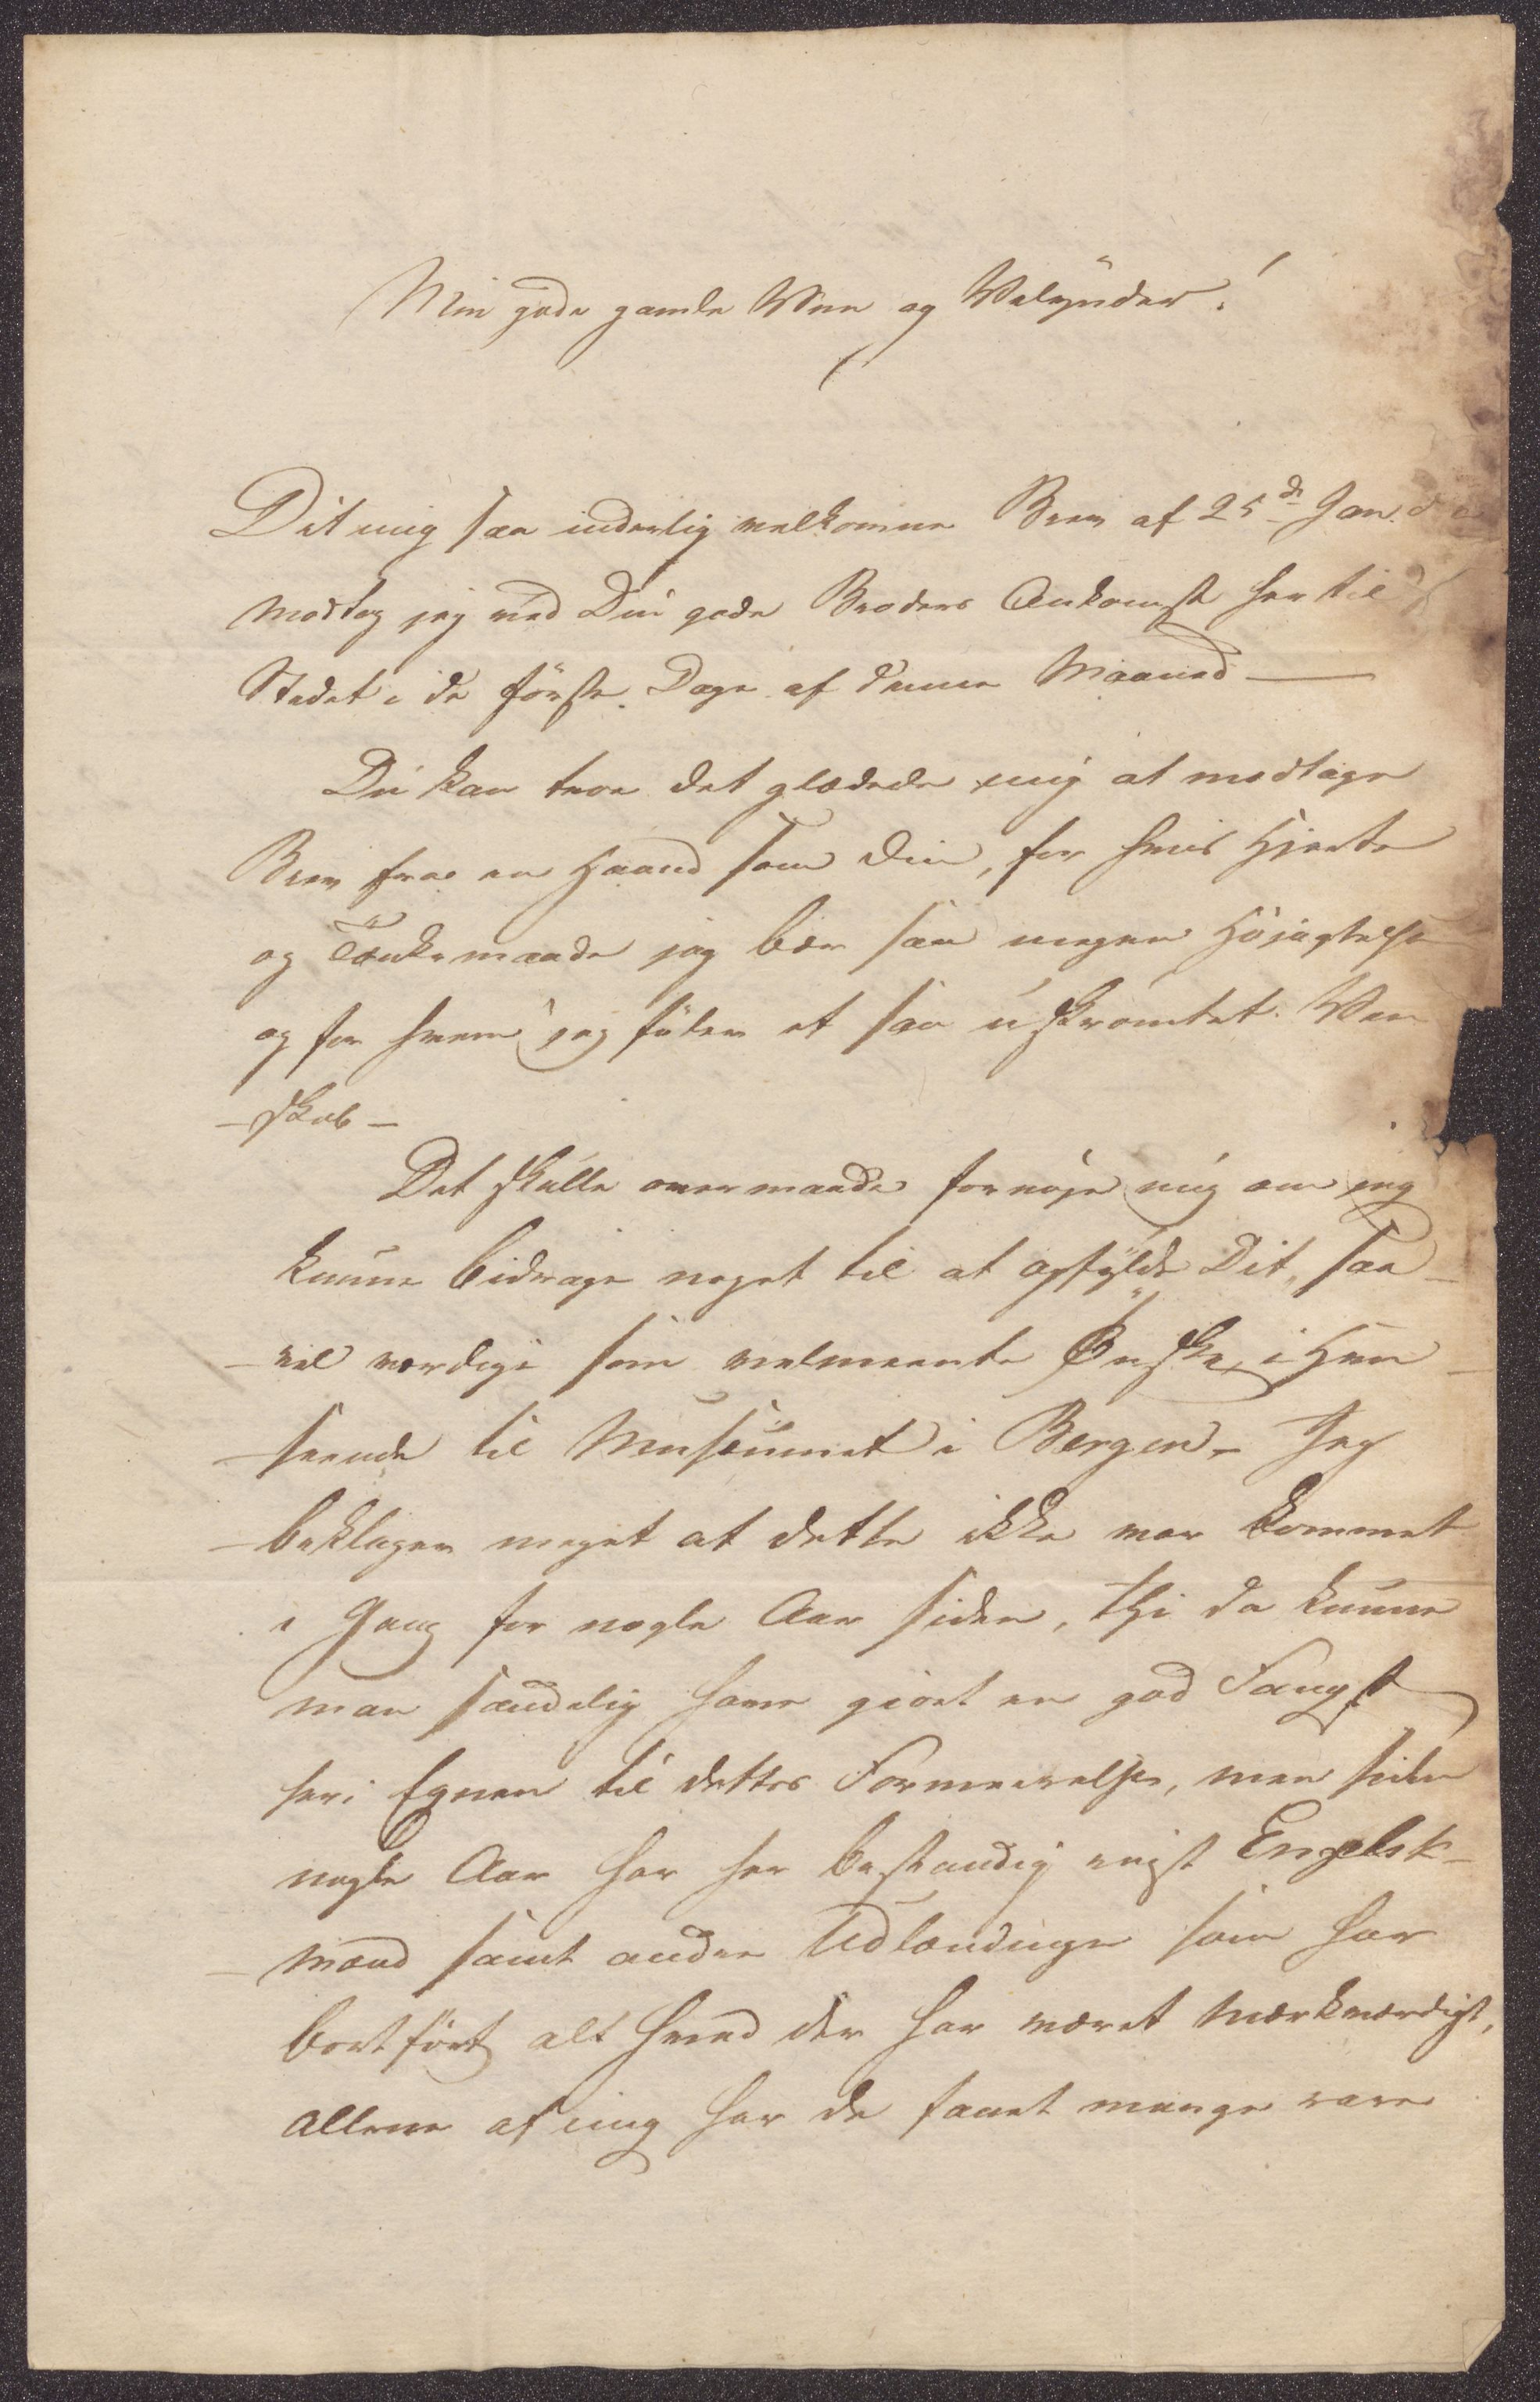 Min gode gamle Ven og Velynder!
Dit mig saa inderlig velkomne Brev af 25de Jan. d. A.
modtog jeg ved Din gode Broders Ankomst her til
Stedet i de förste Dage af denne Maaned —
Du kan troe det glædede mig at modtage
Brev fra en Haand som Din, for hvis Hjerte
og Tænkemaade jeg bær saa megen Höjagtelse
og for hvem jeg föler et saa uskrömtet Ven
- skab -
Det skulle overmaade fornöje mig om jeg
kunne bidrage noget til at opfylde Dit, saa
- vel værdige som velmeente Ønske, i Hen
- seende til Musæumet i Bergen - Jeg
- beklager meget at dette ikke var kommet
i Gang for nogle Aar siden, thi da kunne
man sandelig have giört en god Fangst
her i Egnen til dettes Formeerelse, men siden
nogle Aar har her bestandig reist Engelsk-
- mænd samt andre Udlændinge som har
bortfört alt hvad der har været mærkværdigt,
allene af mig har de faaet mange rare